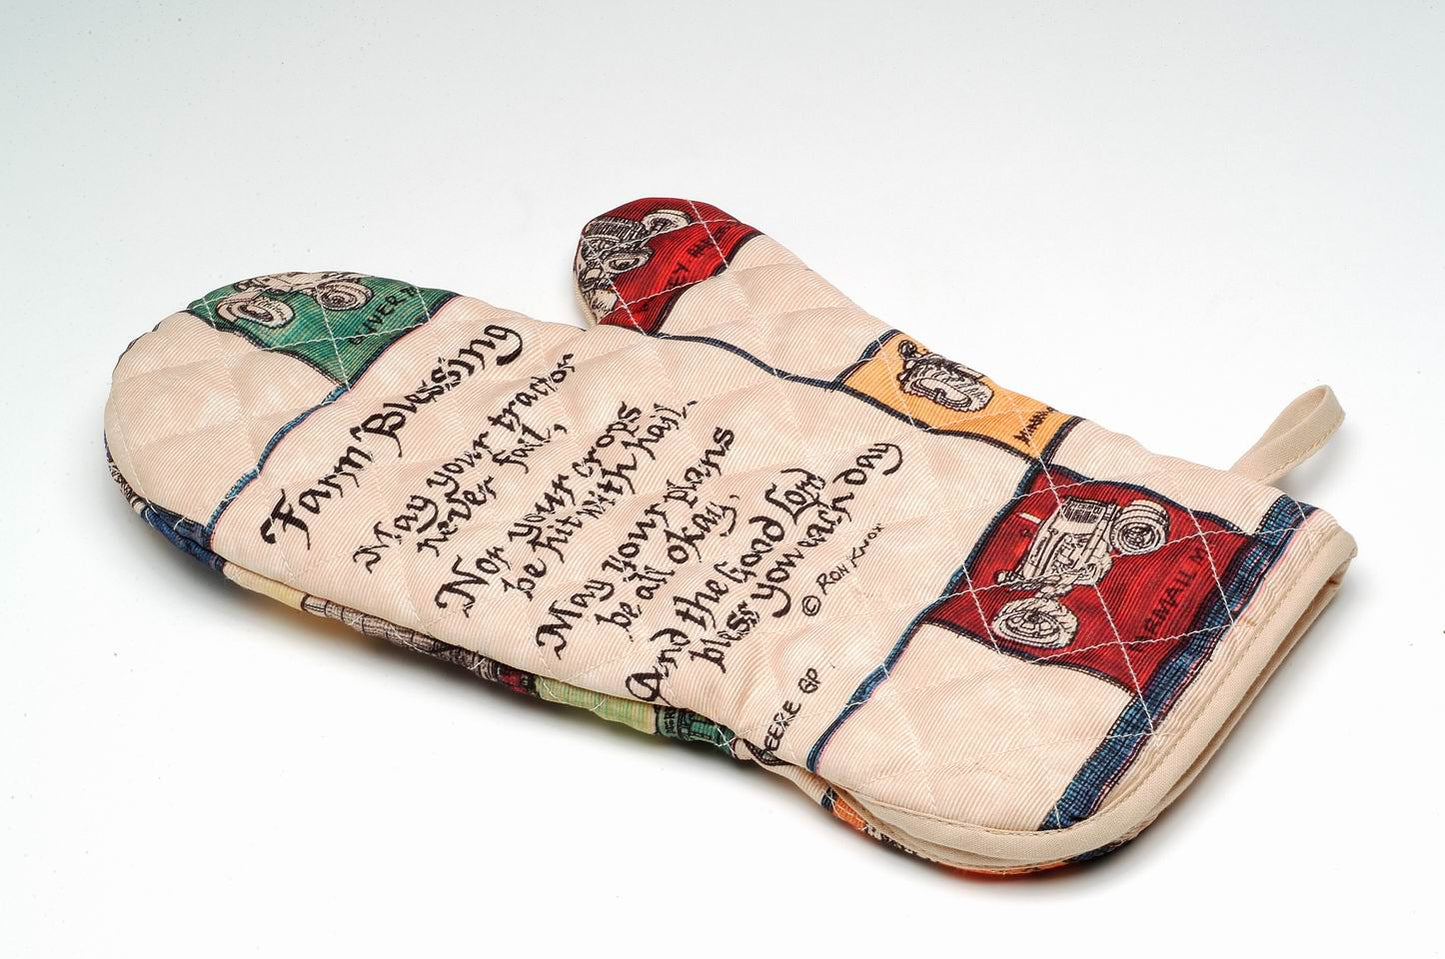 Farm Blessing
May your tractor
never fail,
Nor your crops
be hit with hail.
May your plans
be all okay,
And the Good Lord
bless you each day
© RON KNOX
DEERE GP
FARMALL M
OLIVER